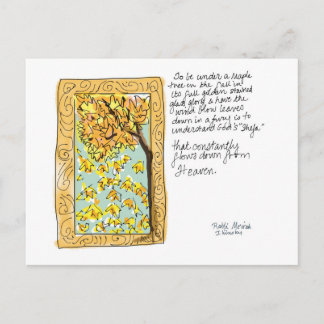 To be under a maple
tree in the fall in
its full golden stained
glass glory & have the
wind blow leaves
down in a furry is to
understand God's "Shefa"
that constantly
flows down from
Heaven.
Rabbi